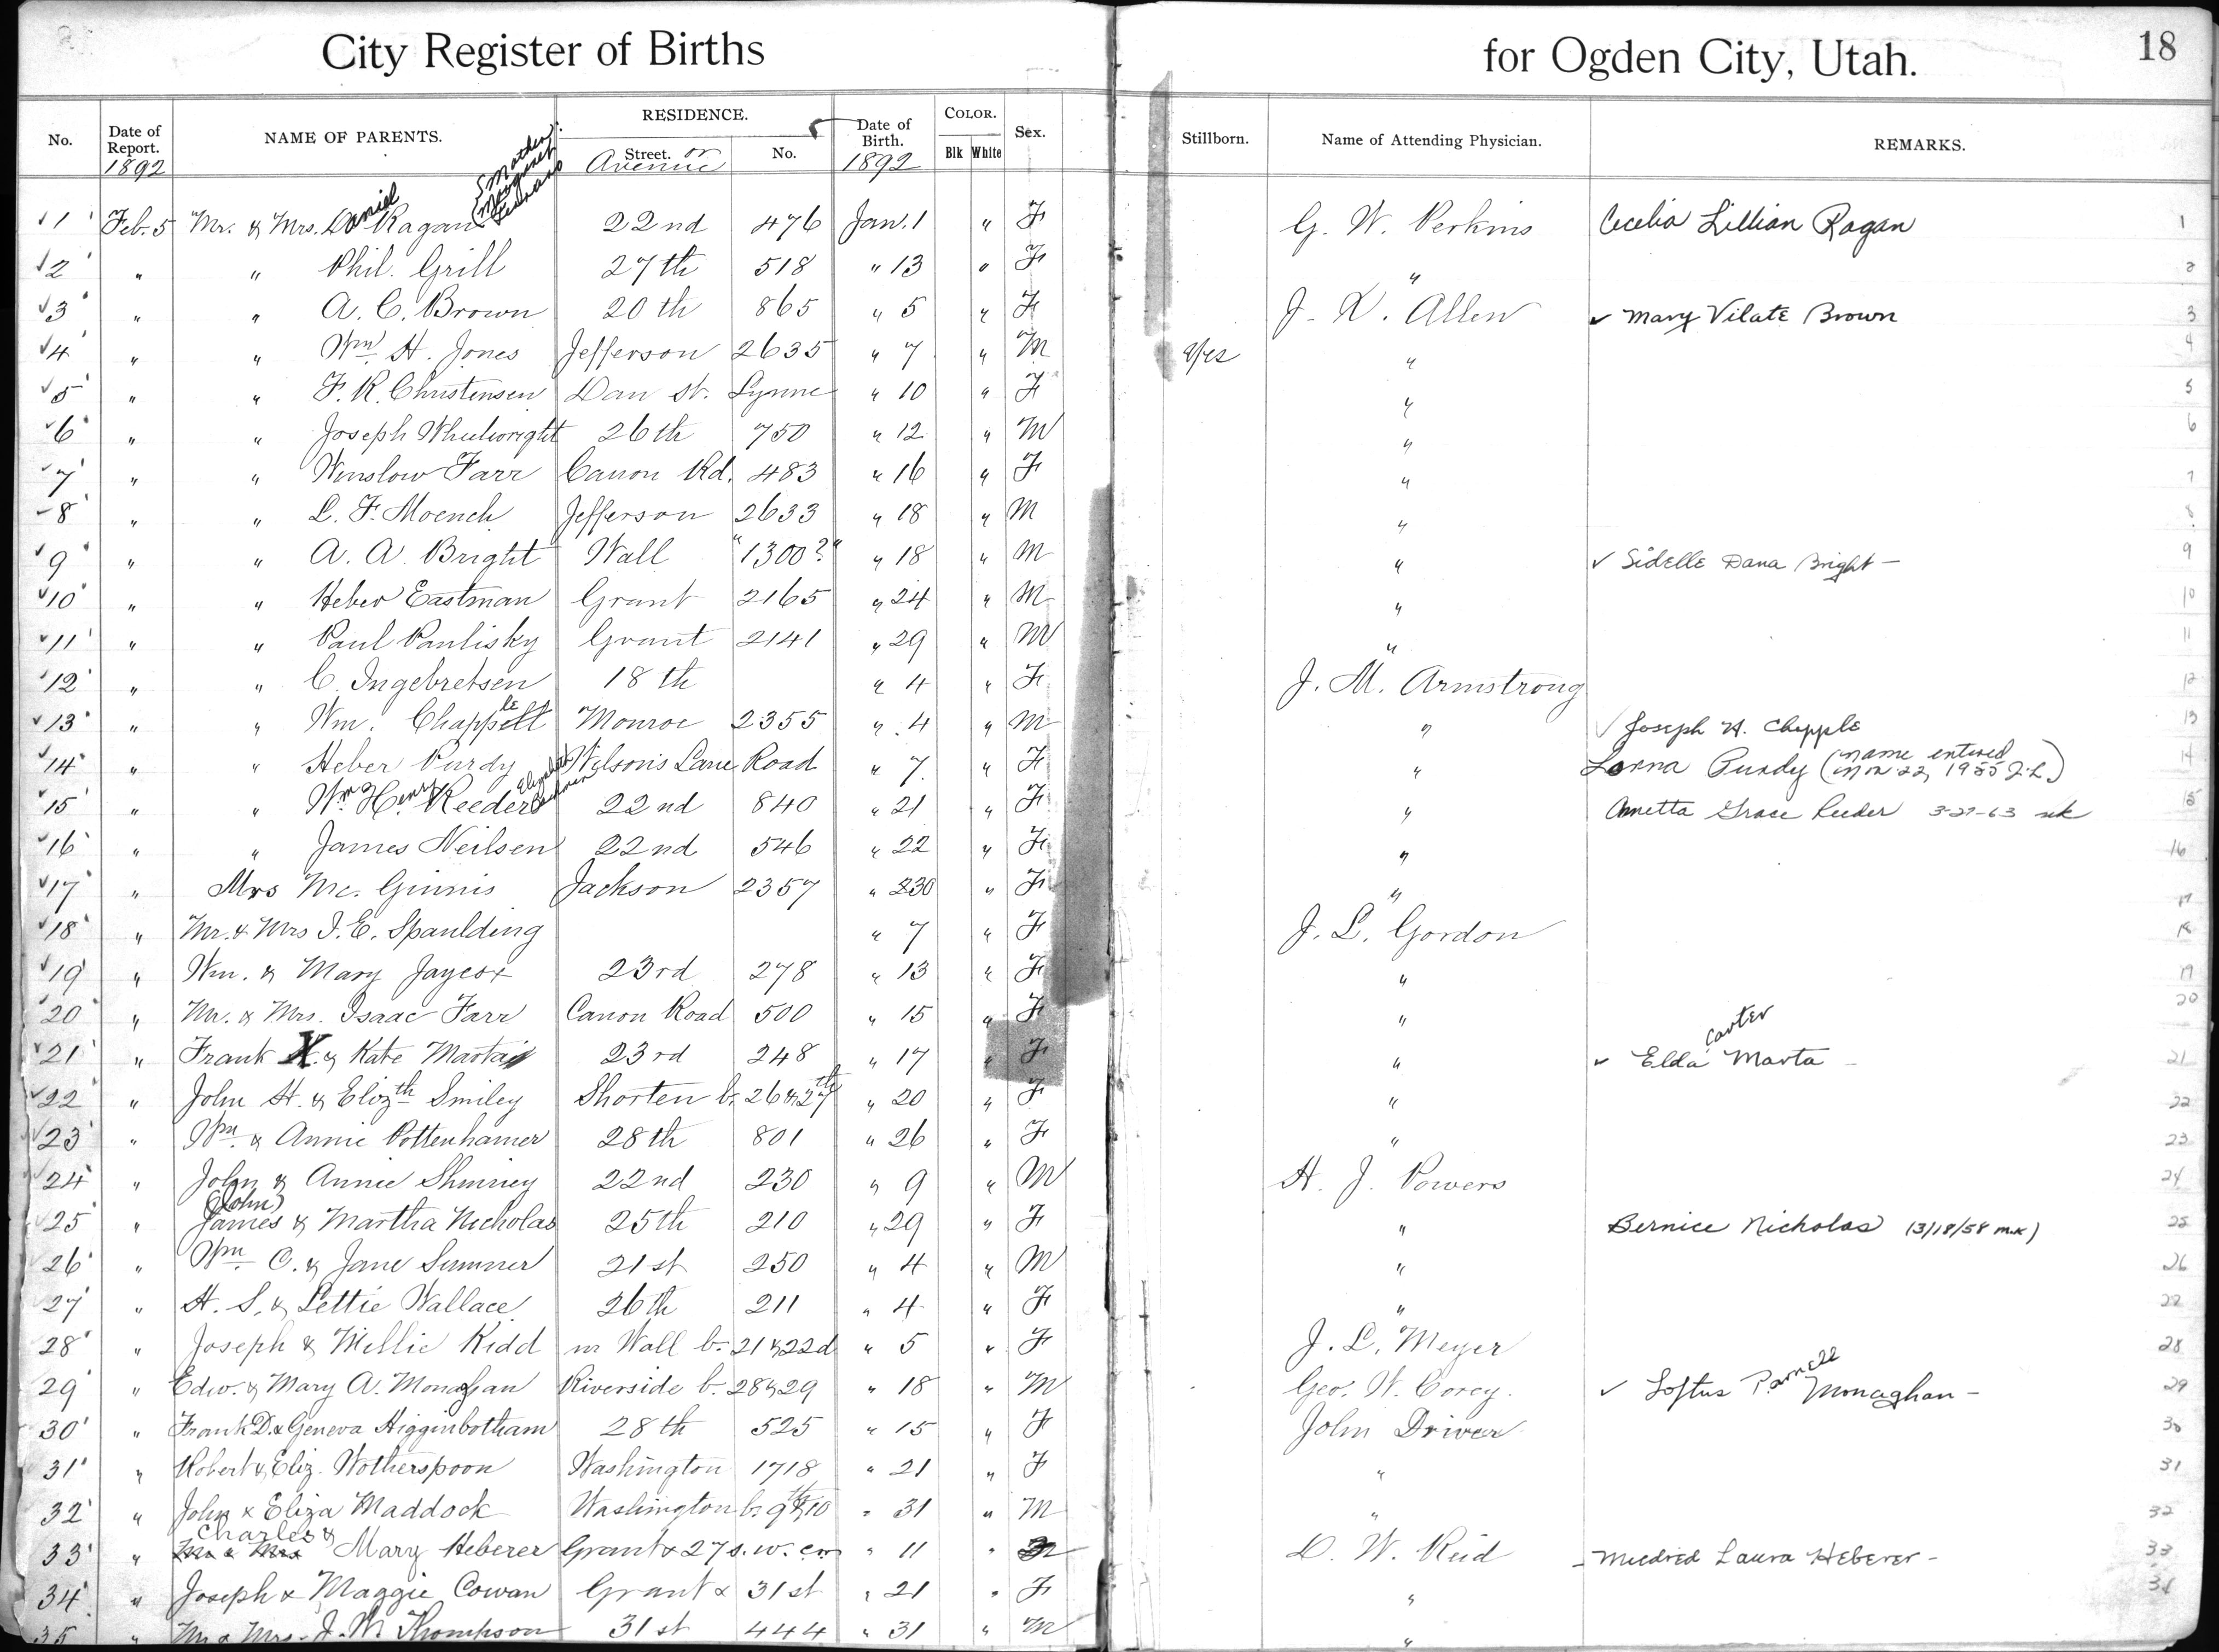 City Register of Births for Ogden City, Utah. 18
No. Date of Report. NAME OF PARENTS. RESIDENCE. Street. No. Date of Birth. COLOR. Blk White Sex. Stillborn. Name of Attending Physician. REMARKS.
1892 Avenue or 1892
Mother Margaret
1 Feb. 5 Mr. & Mrs. Daniel Ragan 22nd 476 Jan. 1 " F G. W. Perkins Cecelia Lillian Ragan 1
2 " " Phil. Grill 27th 518 " 13 " F " 2
3 " " A. C. Brown 20th 865 " 5 " F J. X. Allen ✓ Mary Vilate Brown 3
4 " " Wm. H. Jones Jefferson 2635 " 7 " M Yes " 4
5 " " F. K. Christensen Dan St. Lynne " 10 " F " 5
6 " " Joseph Wheelwright 26th 750 " 12 " M " 6
7 " " Winslow Farr Canon Rd. 483 " 16 " F " 7
8 " " L. F. Moench Jefferson 2633 " 18 " M " 8
9 " " A. A. Bright Wall "1300?" " 18 " M " ✓ Sidelle Dana Bright - 9
10 " " Heber Eastman Grant 2165 " 24 " M " 10
11 " " Paul Paulisky Grant 2141 " 29 " M " 11
12 " " C. Ingebretsen 18th " 4 " F J. M. Armstrong 12
13 " " Wm. Chappell le Monroe 2355 " 4 " M " ✓ Joseph H. Chapple 13
14 " " Heber Purdy Wilson's Lane Road " 7 " F " Lorna Purdy (name entered Nov 22, 1955 J.L.) 14
15 " " Wm. Henry Reeder Elizabeth 22nd 840 " 21 " F " Annetta Grace Reeder 3-27-63 mk 15
16 " " James Neilsen 22nd 546 " 22 " F " 16
17 " Mrs Mc. Ginnis Jackson 2357 " 230 " F " 17
18 " Mr. & Mrs J. E. Spaulding " 7 " F J. L. Gordon 18
19 " Wm. & Mary Jaycox 23rd 278 " 13 " F " 19
20 " Mr. & Mrs. Isaac Farr Canon Road 500 " 15 " F " 20
21 " Frank X. & Kate Marta 23rd 248 " 17 " F " ✓ Elda Carter Marta - 21
22 " John H. & Elizth Smiley Shorten b. 26 & 27th " 20 " F " 22
23 " Wm. & Annie Pottenhamer 28th 801 " 26 " F " 23
24 " John & Annie Shinney 22nd 230 " 9 " M H. J. Powers 24
(John)
25 " James & Martha Nicholas 25th 210 " 29 " F " Bernice Nicholas (3/18/58 m.k) 25
26 " Wm. C. & Jane Sumner 21st 250 " 4 " M " 26
27 " H. S. & Lettie Wallace 26th 211 " 4 " F " 27
28 " Joseph & Millie Kidd nr Wall b. 21 & 22d " 5 " F J. L. Meyer 28
29 " Edw. & Mary A. Monaghan Riverside b. 28 & 29 " 18 " M Geo. W. Corey. ✓ Loftus Parnell Monaghan - 29
30 " Frank D. & Geneva Higginbotham 28th 525 " 15 " F John Driver 30
31 " Robert & Eliz. Wotherspoon Washington 1718 " 21 " F " 31
32 " John & Eliza Maddock Washington b. 9th & 10 " 31 " M " 32
Charles &
33 " Mr & Mrs Mary Heberer Grant & 27 s. w. cor " 11 " D. W. Reid - Mildred Laura Heberer - 33
34 " Joseph & Maggie Cowan Grant & 31st " 21 " F " 34
35 " Mr & Mrs. J. W. Thompson 31st 444 " 31 " M "